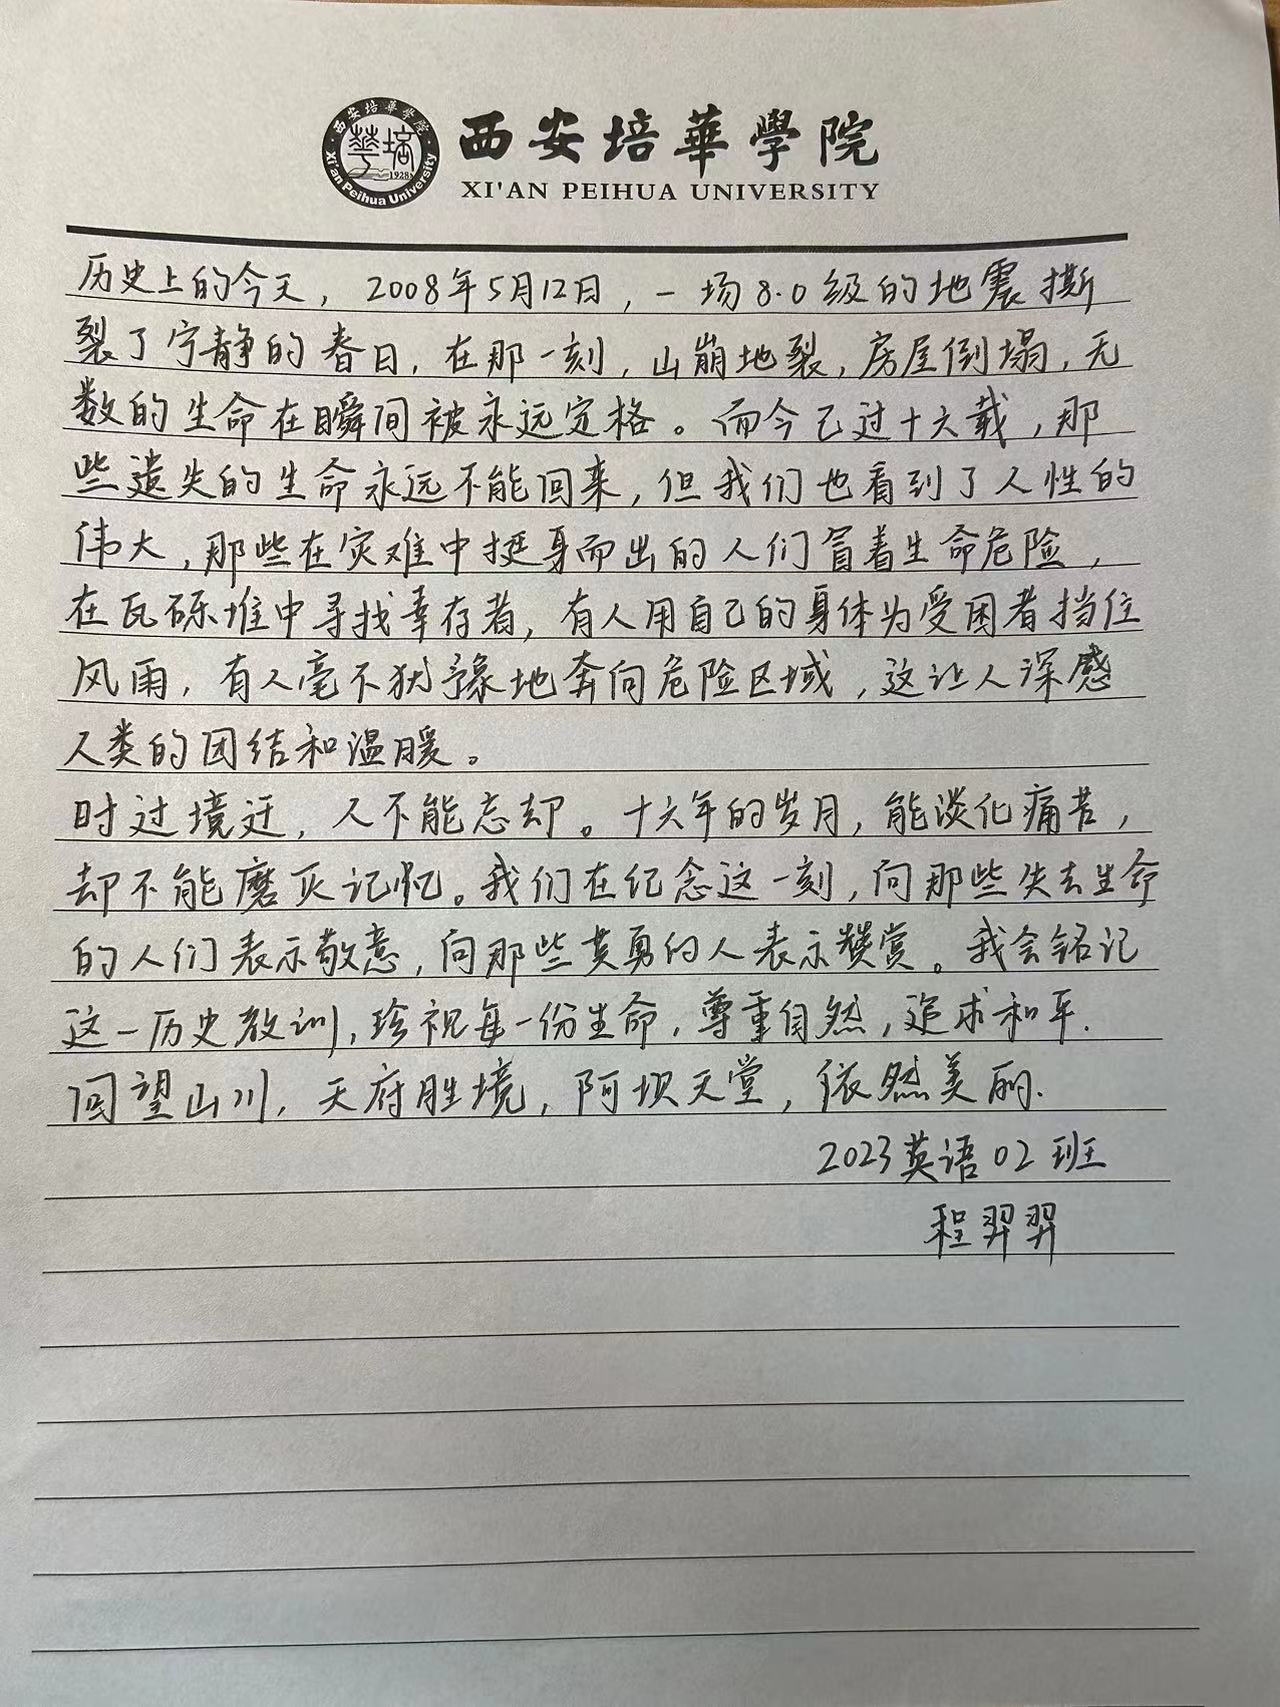 西安培華學院
XI'AN PEIHUA UNIVERSITY
西安培華學院
1928
Xi'an Peihua University
历史上的今天，2008年5月12日，一场8.0级的地震撕
裂了宁静的春日，在那一刻，山崩地裂，房屋倒塌，无
数的生命在瞬间被永远定格。而今已过十六载，那
些遗失的生命永远不能回来，但我们也看到了人性的
伟大，那些在灾难中挺身而出的人们冒着生命危险，
在瓦砾堆中寻找幸存者，有人用自己的身体为受困者挡住
风雨，有人毫不犹豫地奔向危险区域，这让人深感
人类的团结和温暖。
时过境迁，人不能忘却。十六年的岁月，能淡化痛苦，
却不能磨灭记忆。我们在纪念这一刻，向那些失去生命
的人们表示敬意，向那些英勇的人表示赞赏。我会铭记
这一历史教训，珍视每一份生命，尊重自然，追求和平.
回望山川，天府胜境，阿坝天堂，依然美丽.
2023英语02班
程羿羿